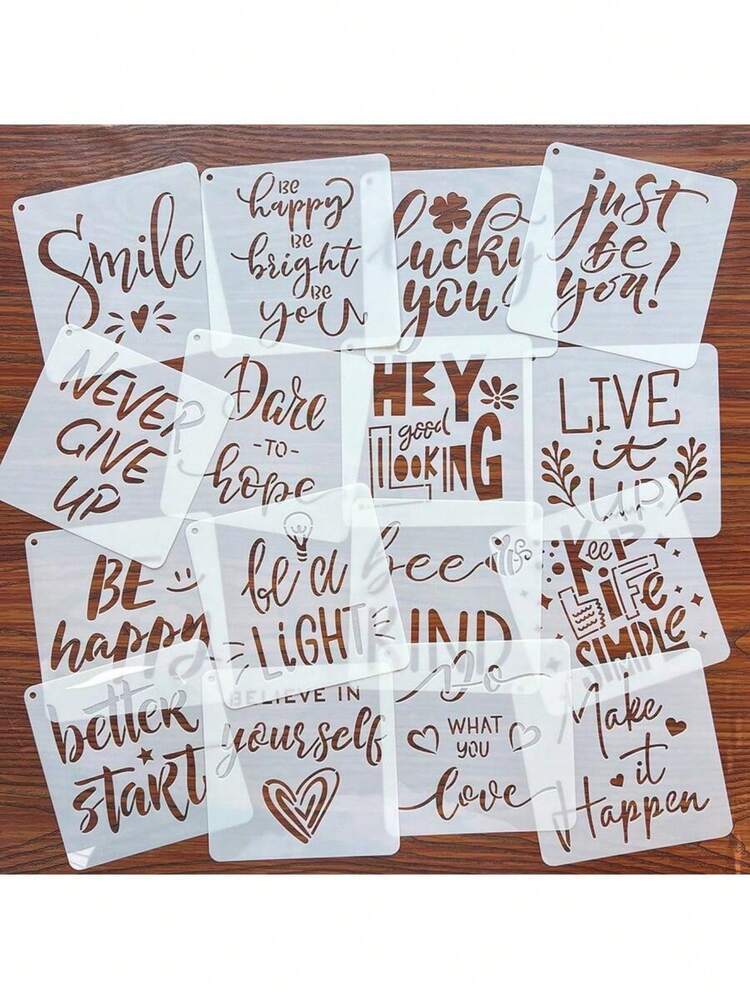 Smile
be
happy
be
bright
be
you
lucky
you
just
be
you!
NEVER
GIVE
UP
Dare
-TO-
hope
HEY
good
LOOKING
LIVE
it
UP
BE
happy
be a
LIGHT
bee
KIND
KEEP
LIFE
SIMPLE
better
START
BELIEVE IN
yourself
Do
WHAT
YOU
love
Make
it
Happen